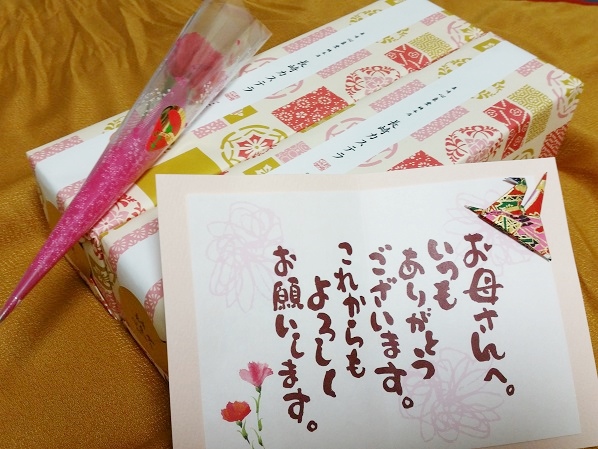 お母さんへ。
いつも
ありがとう
ございます。
これからも
よろしく
お願いします。
長崎カステラ
長崎カステラ